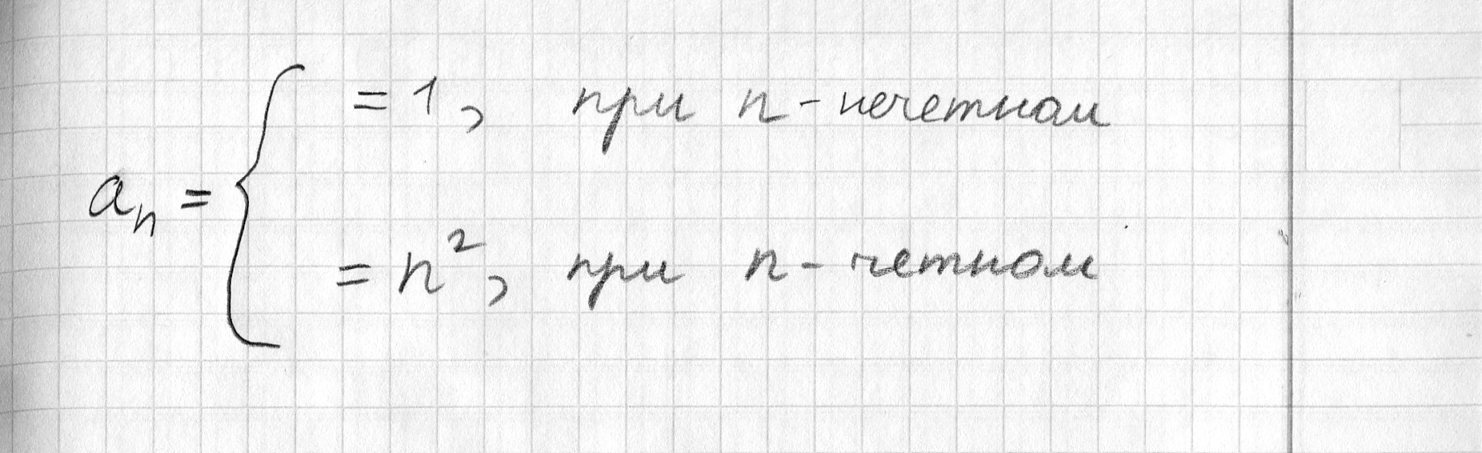 = 1, при n - нечетном
aₙ =
= n², при n - четном